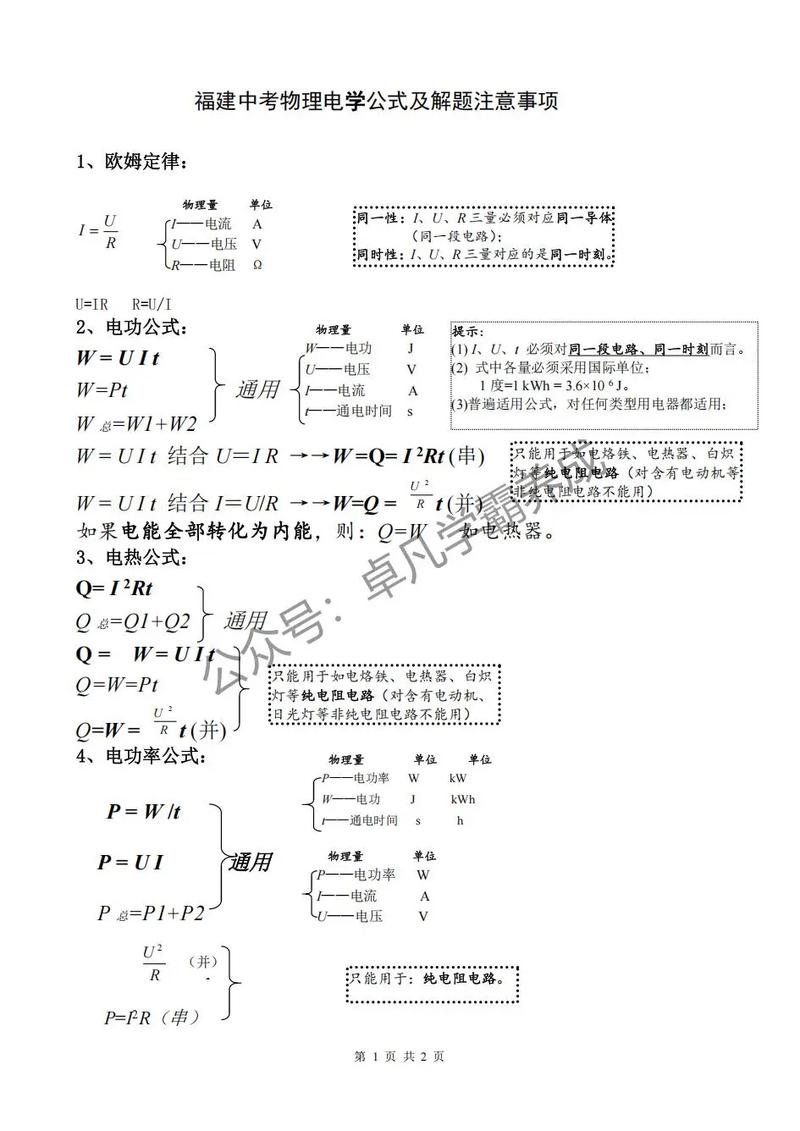 福建中考物理电学公式及解题注意事项
1、欧姆定律：
物理量 单位
I = U/R
I——电流 A
U——电压 V
R——电阻 Ω
同一性：I、U、R 三量必须对应同一导体
（同一段电路）；
同时性：I、U、R 三量对应的是同一时刻。
U=IR R=U/I
2、电功公式：
物理量 单位
W = U I t
W=Pt
W 总=W1+W2
通用
W——电功 J
U——电压 V
I——电流 A
t——通电时间 s
提示：
(1) I、U、t 必须对同一段电路、同一时刻而言。
(2) 式中各量必须采用国际单位；
1 度=1 kWh = 3.6×10 ⁶ J。
(3)普遍适用公式，对任何类型用电器都适用；
W = U I t 结合 U＝I R →→W =Q= I ²Rt (串)
W = U I t 结合 I＝U/R →→W=Q = U ²/R t (并)
只能用于如电烙铁、电热器、白炽
灯等纯电阻电路（对含有电动机等
非纯电阻电路不能用）
如果电能全部转化为内能，则：Q=W 如电热器。
3、电热公式：
Q= I ²Rt
Q 总=Q1+Q2
通用
Q = W = U I t
Q=W=Pt
Q=W = U ²/R t (并)
只能用于如电烙铁、电热器、白炽
灯等纯电阻电路（对含有电动机、
日光灯等非纯电阻电路不能用）
4、电功率公式：
物理量 单位 单位
P——电功率 W kW
W——电功 J kWh
t——通电时间 s h
P = W /t
P = U I
P 总=P1+P2
通用
物理量 单位
P——电功率 W
I——电流 A
U——电压 V
U ²/R （并）
P=I²R（串）
只能用于：纯电阻电路。
公众号：卓凡学霸养成
第 1 页 共 2 页